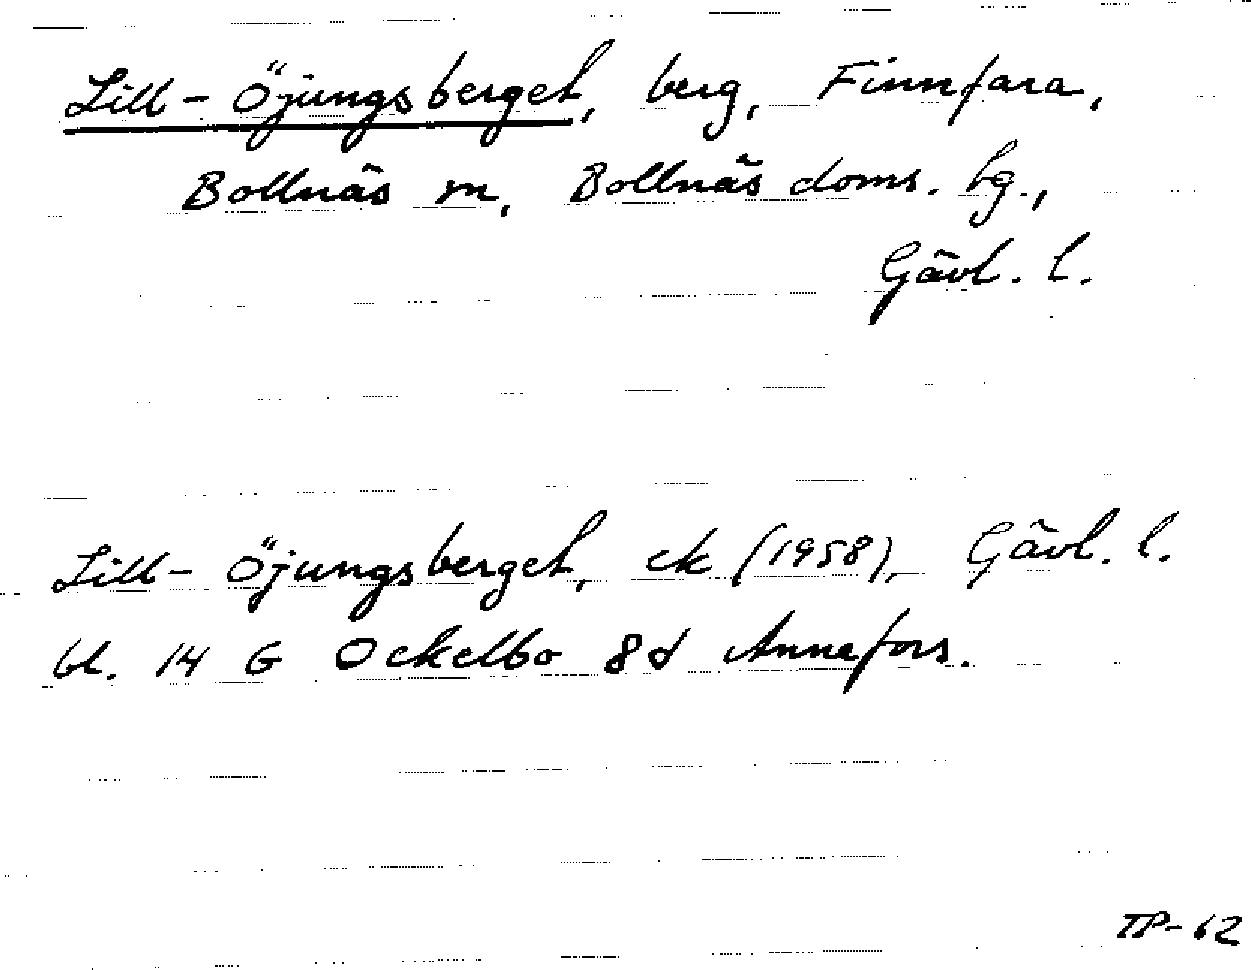 Lill-Öjungsberget, berg, Finnfara,
Bollnäs m, Bollnäs doms. hg.,
Gävl. l.
Lill-Öjungsberget, ek (1958), Gävl. l.
bl. 14 G Ockelbo 8d Annefors.
TP-62